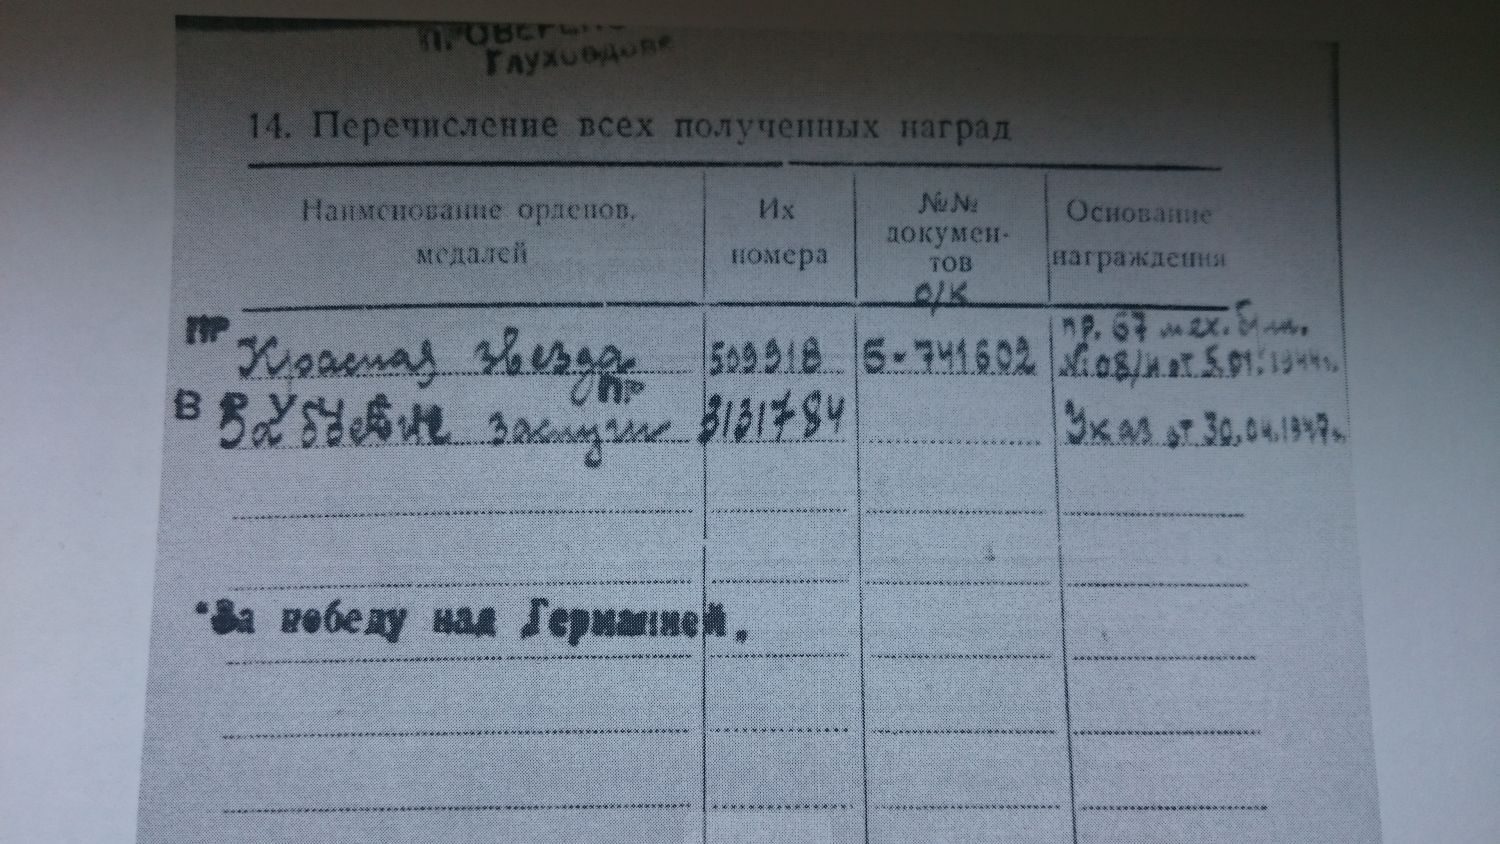 14. Перечисление всех полученных наград
Наименование орденов, медалей
Их номера
№№ документов
О/К
Основание награждения
ПР
Красная звезда 509918 Б-741602 пр. 67 мех. бр.
№ 08/н от 5.01.1944г.
ВРУЧЕН ПР
За боевые заслуги 3131784 Указ от 30.04.1947г.
"За победу над Германией".